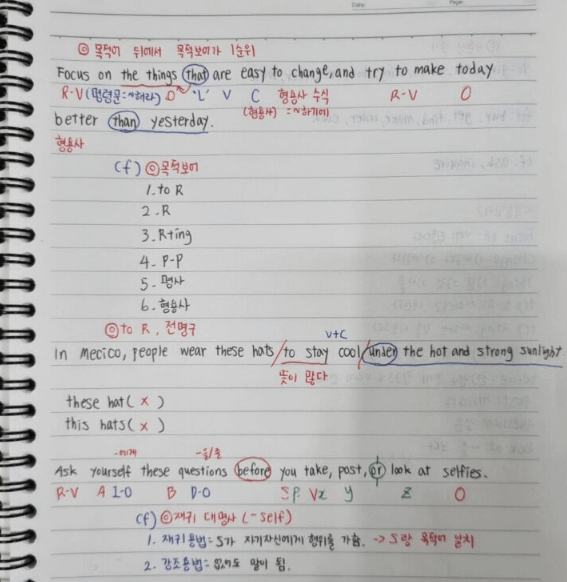 Date: Page:
◎ 목적어 뒤에서 목적보어가 1순위
Focus on the things that are easy to change, and try to make today
R-V (명령문 : ~해라) O "L" V C 형용사 수식 R-V O
(형용사) : ~하기에
better than yesterday.
형용사
(cf) ◎ 목적보어
1. to R
2. R
3. Rting
4. P-P
5. 명사
6. 형용사
◎ to R, 전명구
V+C
In Mecico, people wear these hats / to stay cool / under the hot and strong sunlight
뜻이 많다
these hat ( X )
this hats ( X )
-에게 -을/를
Ask yourself these questions before you take, post, or look at selfies.
R-V A I-O B D-O S P. Vx y z O
(cf) ◎ 재귀 대명사 (-self)
1. 재귀용법 : S가 자기자신에게 행위를 가함. → S랑 목적어 일치
2. 강조용법 : 없어도 말이 됨.